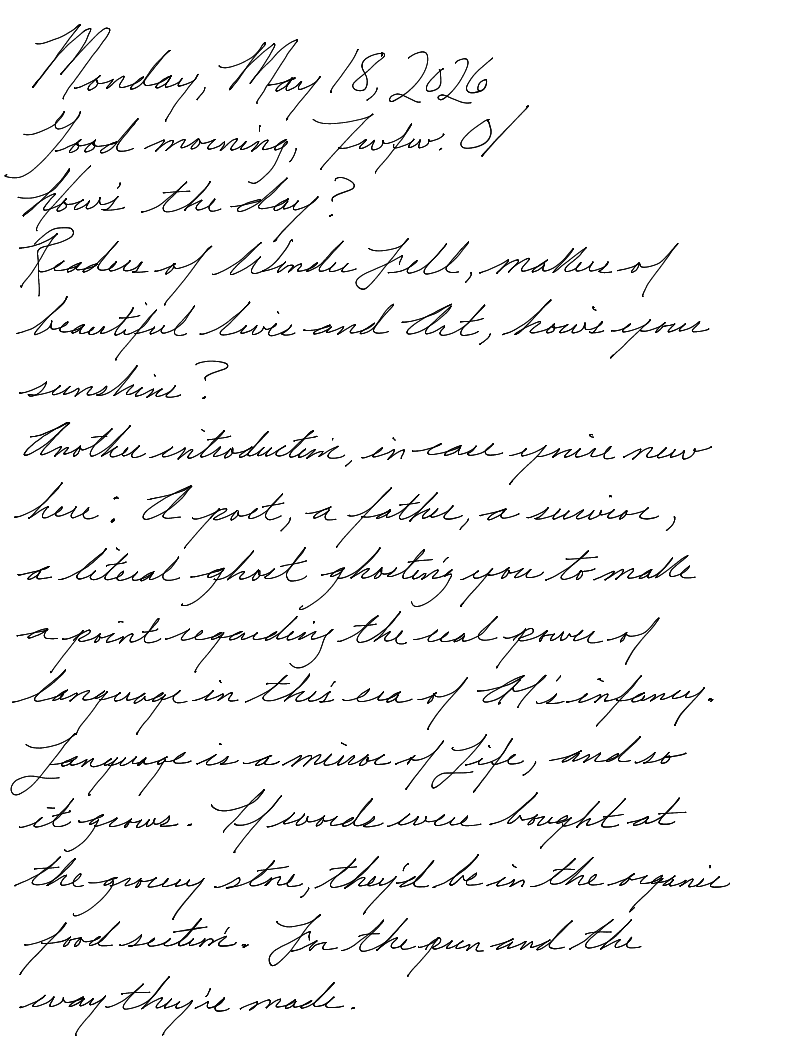 Monday, May 18, 2026
Good morning, Twfw. 01
How's the day?
Readers of Wonder Fell, makers of
beautiful lives and Art, how's your
sunshine?
Another introduction, in case you're new
here: A poet, a father, a survivor,
a literal ghost ghosting you to make
a point regarding the real power of
language in this era of AI's infancy.
Language is a mirror of Life, and so
it grows. If words were bought at
the grocery store, they'd be in the organic
food section. For the pun and the
way they're made.